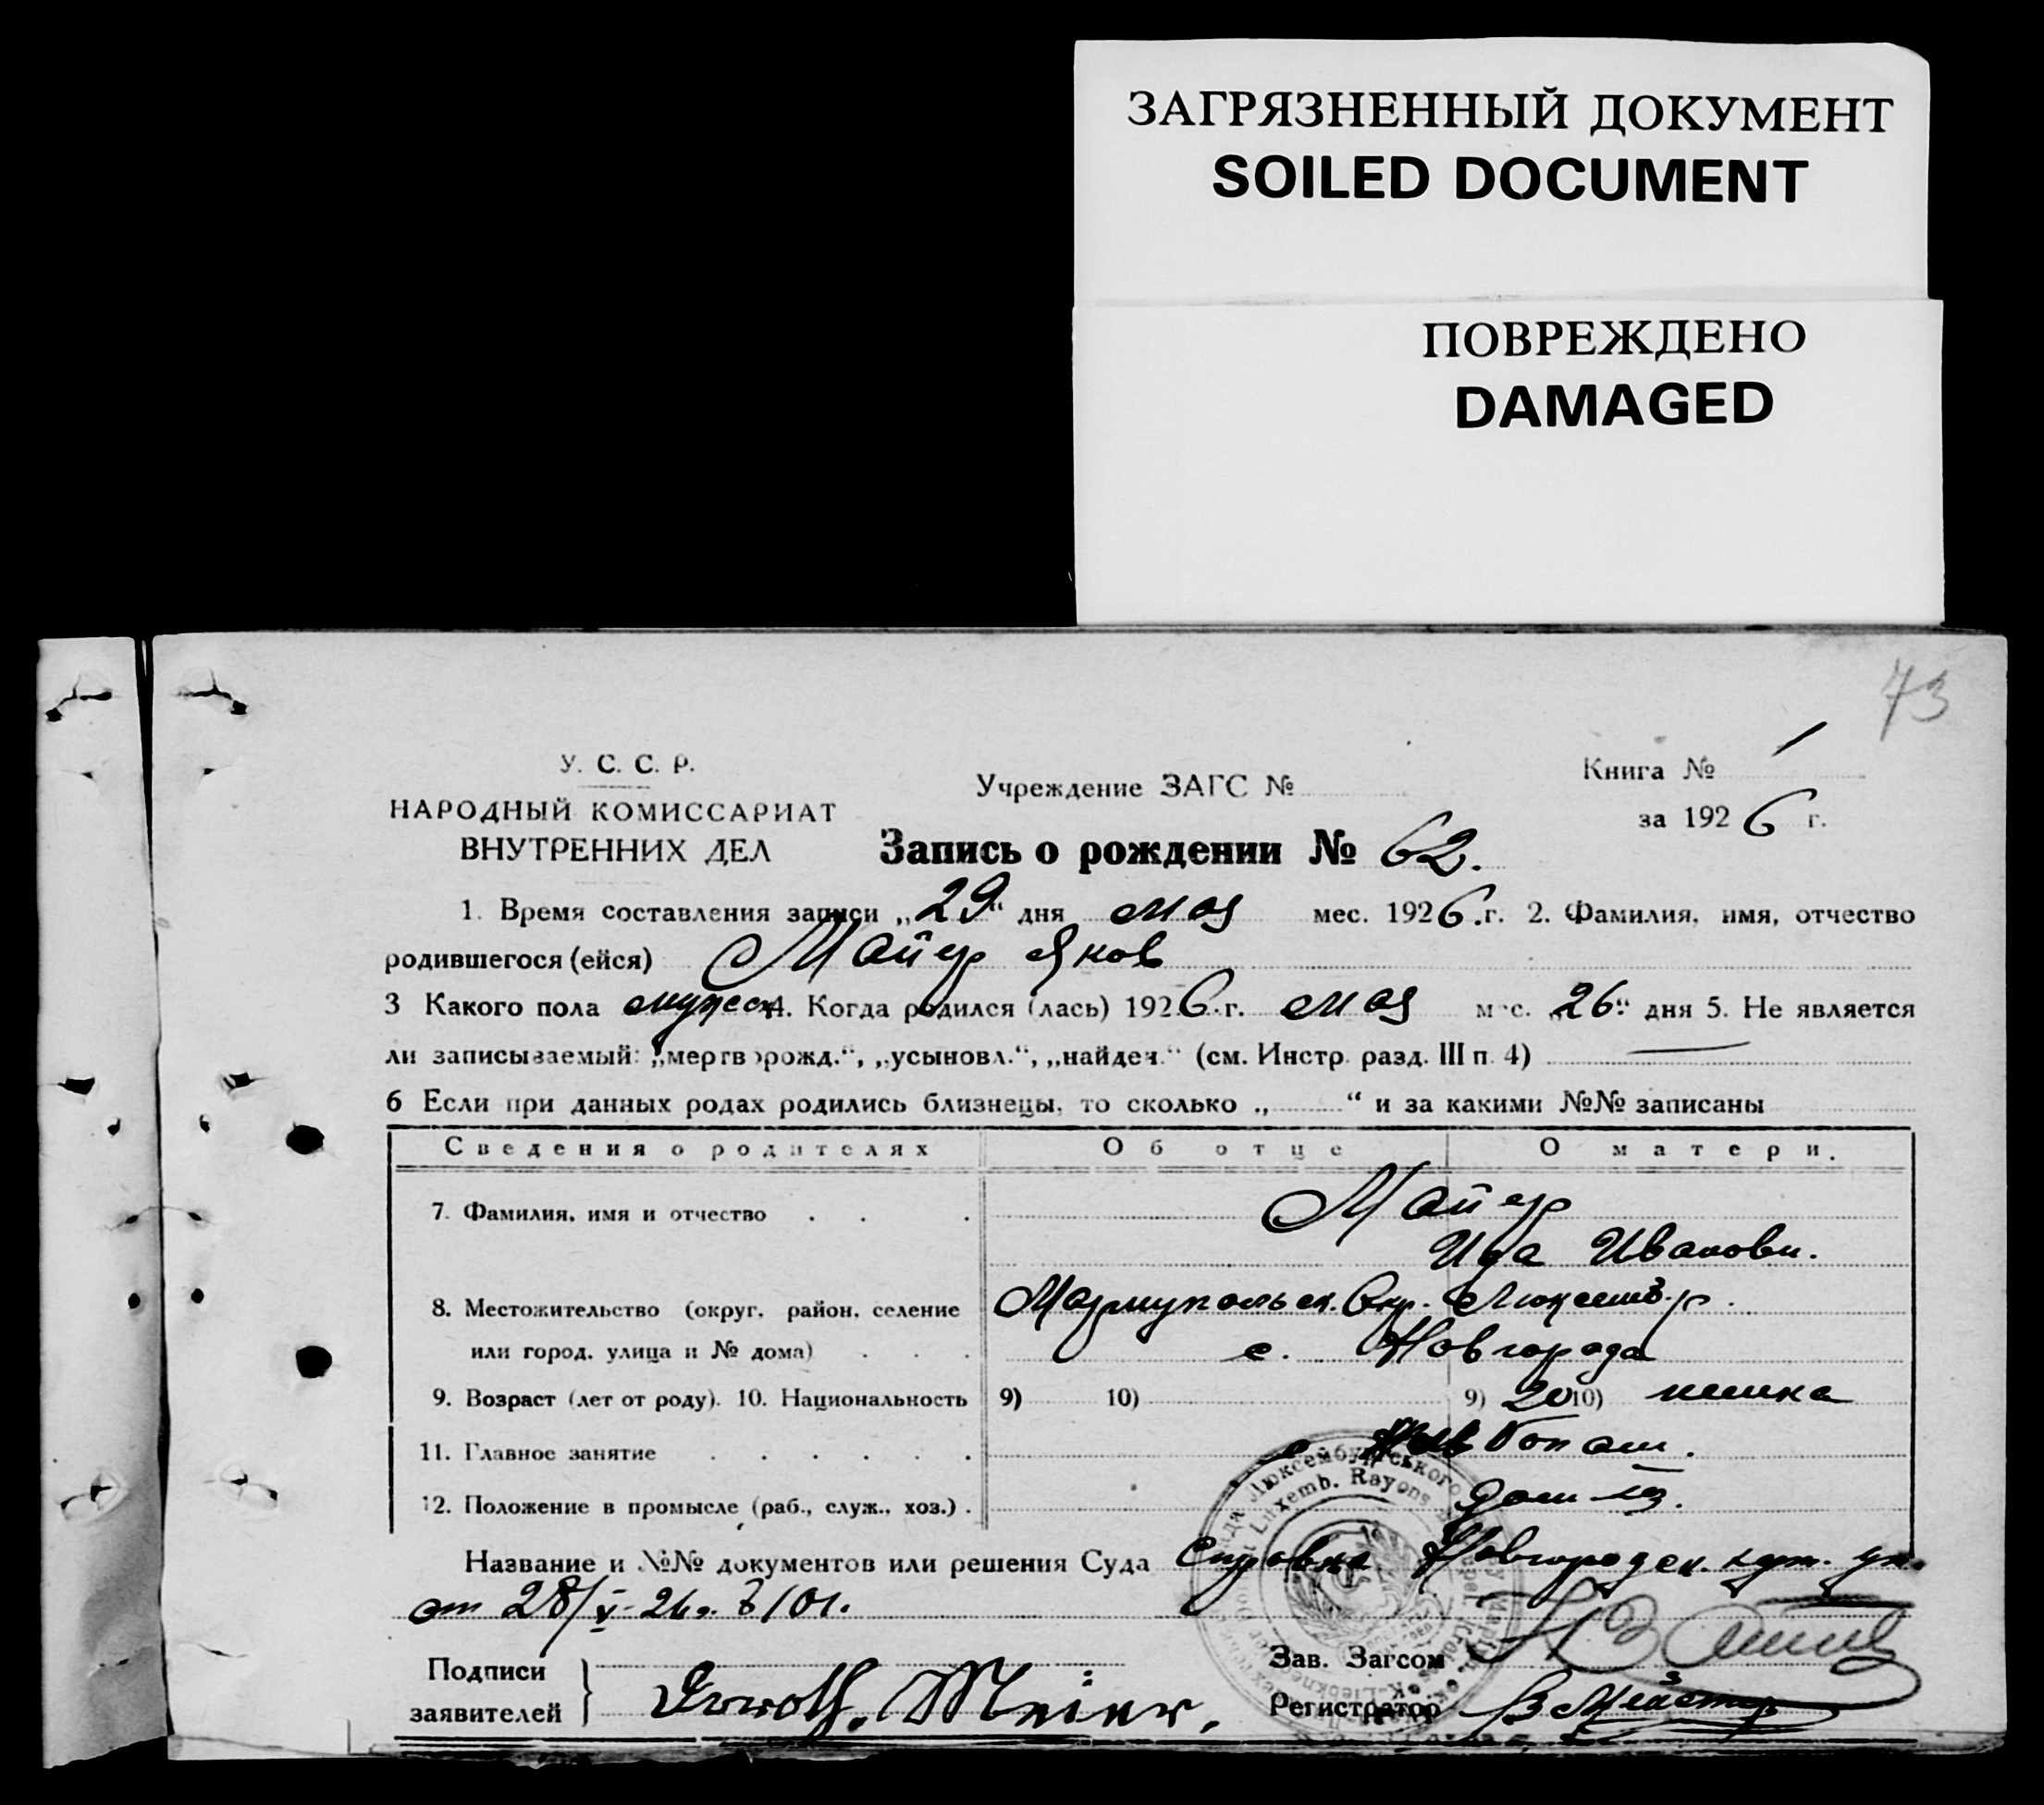 ЗАГРЯЗНЕННЫЙ ДОКУМЕНТ
SOILED DOCUMENT
ПОВРЕЖДЕНО
DAMAGED
73
У. С. С. Р.
НАРОДНЫЙ КОМИССАРИАТ
ВНУТРЕННИХ ДЕЛ
Учреждение ЗАГС №
Книга № 1
за 1926 г.
Запись о рождении № 62.
1. Время составления записи „29“ дня мая мес. 1926 г. 2. Фамилия, имя, отчество
родившегося (ейся) Майер Яков
3 Какого пола мужск 4. Когда родился (лась) 1926 г. мая мес. „26“ дня 5. Не является
ли записываемый: „мертворожд.“, „усыновл.“, „найден.“ (см. Инстр. разд. III п. 4) —
6 Если при данных родах родились близнецы, то сколько „ “ и за какими №№ записаны
Сведения о родителях Об отце О матери.
7. Фамилия, имя и отчество . . . Майер
Ида Ивановн.
8. Местожительство (округ, район, селение Мариупольск. Окр. Люксемб. р.
или город, улица и № дома) . . . с. Новгорода
9. Возраст (лет от роду). 10. Национальность 9) 10) 9) 20 10) немка
11. Главное занятие . . . . . .
12. Положение в промысле (раб., служ., хоз.) .
Название и №№ документов или решения Суда Справка Новгородск.
от 28/V-26г. з/01.
Подписи
заявителей
Meier.
Зав. Загсом
Регистратор
Luxemb. Rayons